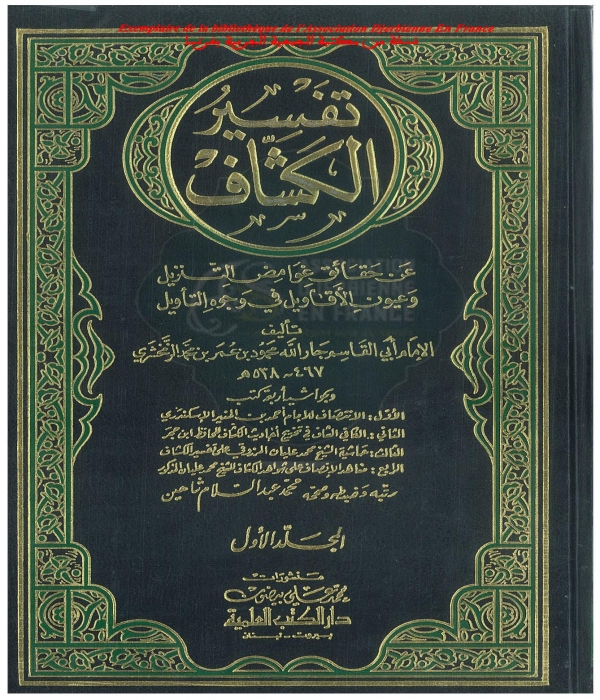 Exemplaire de la bibliothèque de l'Association Zherbienne En France
تفسير
الكشاف
عن حقائق غوامض التنزيل
وعيون الأقاويل في وجوه التأويل
تأليف
الإمام أبي القاسم جار الله محمود بن عمر بن محمد الزمخشري
٤٦٧ - ٥٣٨ هـ
وبحواشيه أربعة كتب
الأول : الانتصاف للإمام أحمد بن المنير الإسكندري
الثاني : الكافي الشاف في تخريج أحاديث الكشاف للحافظ ابن حجر
الثالث : حاشية الشيخ محمد عليان المرزوقي على تفسير الكشاف
الرابع : مشاهد الإنصاف على شواهد الكشاف للشيخ محمد عليان المذكور
رتبه وضبطه وصححه محمد عبد السلام شاهين
المجلد الأول
منشورات
محمد علي بيضون
دار الكتب العلمية
بيروت - لبنان
ASSOCIATION
EN FRANCE